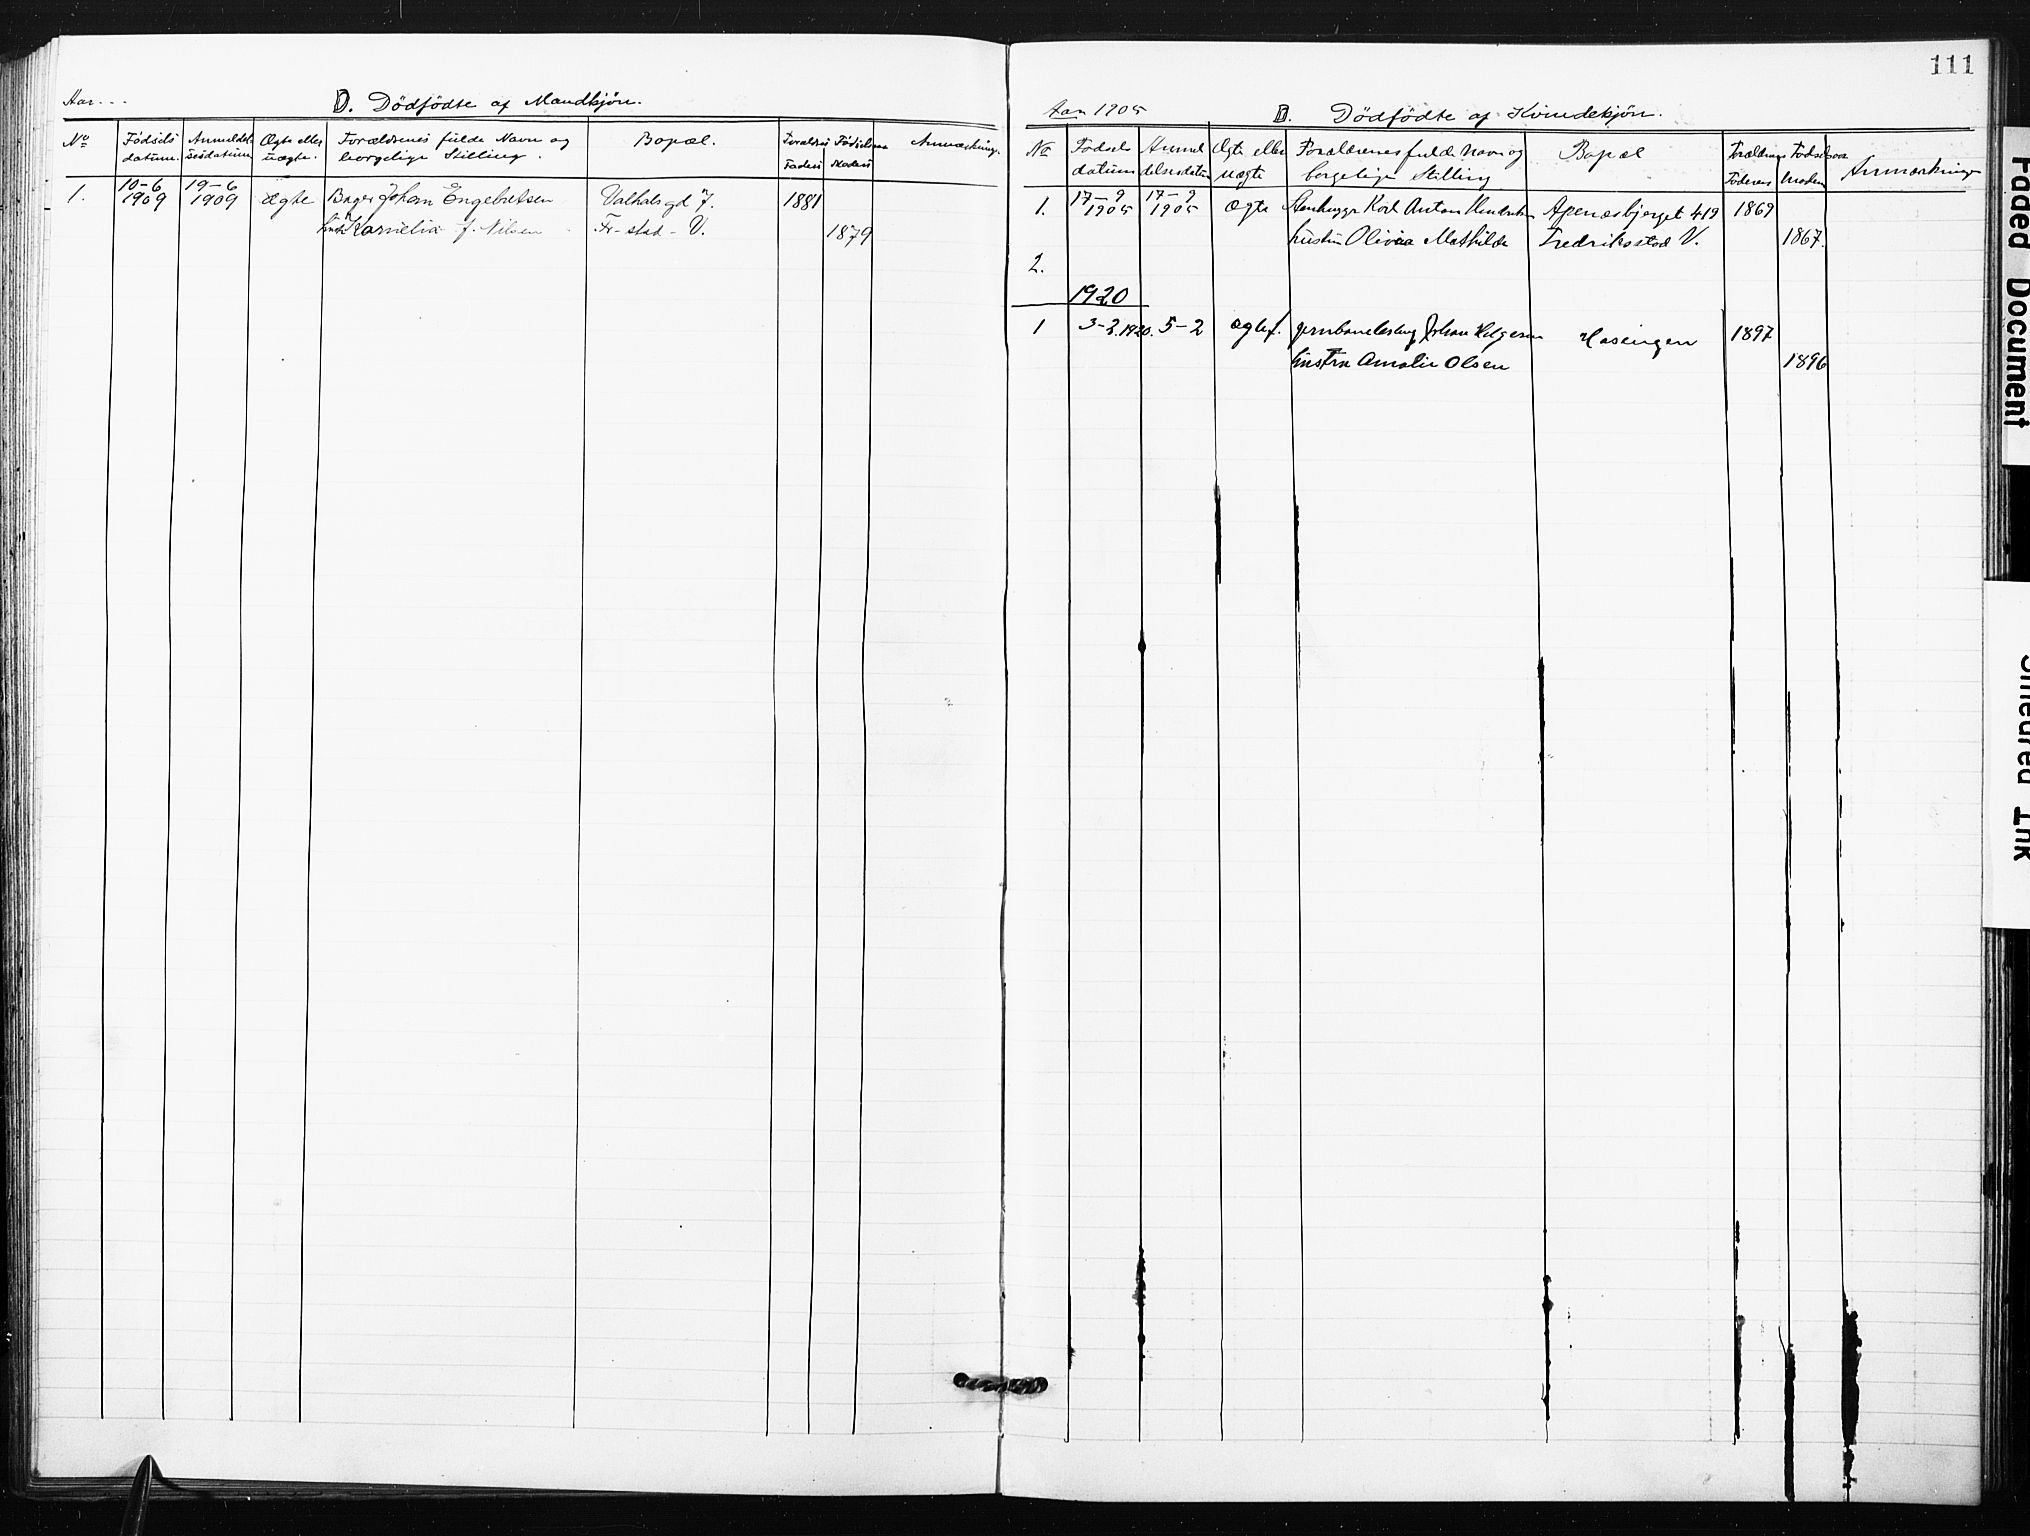 Aar...
D. Dödfödte af Mandkjön.
No
Födsels datum.
Anmeldelsesdatum
Ægte eller uægte.
Forældrenes fulde Navn og borgelige Stilling.
Bopæl.
Forældres Födselsaar
Faders
Moders
Anmærkning.
1.
10-6 1909
19-6 1909
ægte
Bager Johan Engebretsen
Valhalsgd 7.
1881
Kornelia f. Nilsen
Fr-stad - V.
1879
111
Aar 1905
D. Dödfödte af Kvindekjön.
No
Födsels datum
Anmeldelsesdatum
Ægte eller uægte
Forældrenes fulde Navn og borgelige Stilling
Bopæl
Forældrenes Födselsaar
Föderens
Moderen
Anmærkninger
1.
17-9 1905
17-9 1905
ægte
Stenhugger Karl Anton
Apenæsbjerget 419
1869
hustru Olivia Mathilde
Fredriksstad V.
1867.
2.
1920
1
3-2.1920.
5-2
ægtef.
Johan Helgesen
1897
hustru Amalie Olsen
1896
Faded Document
Smeared Ink